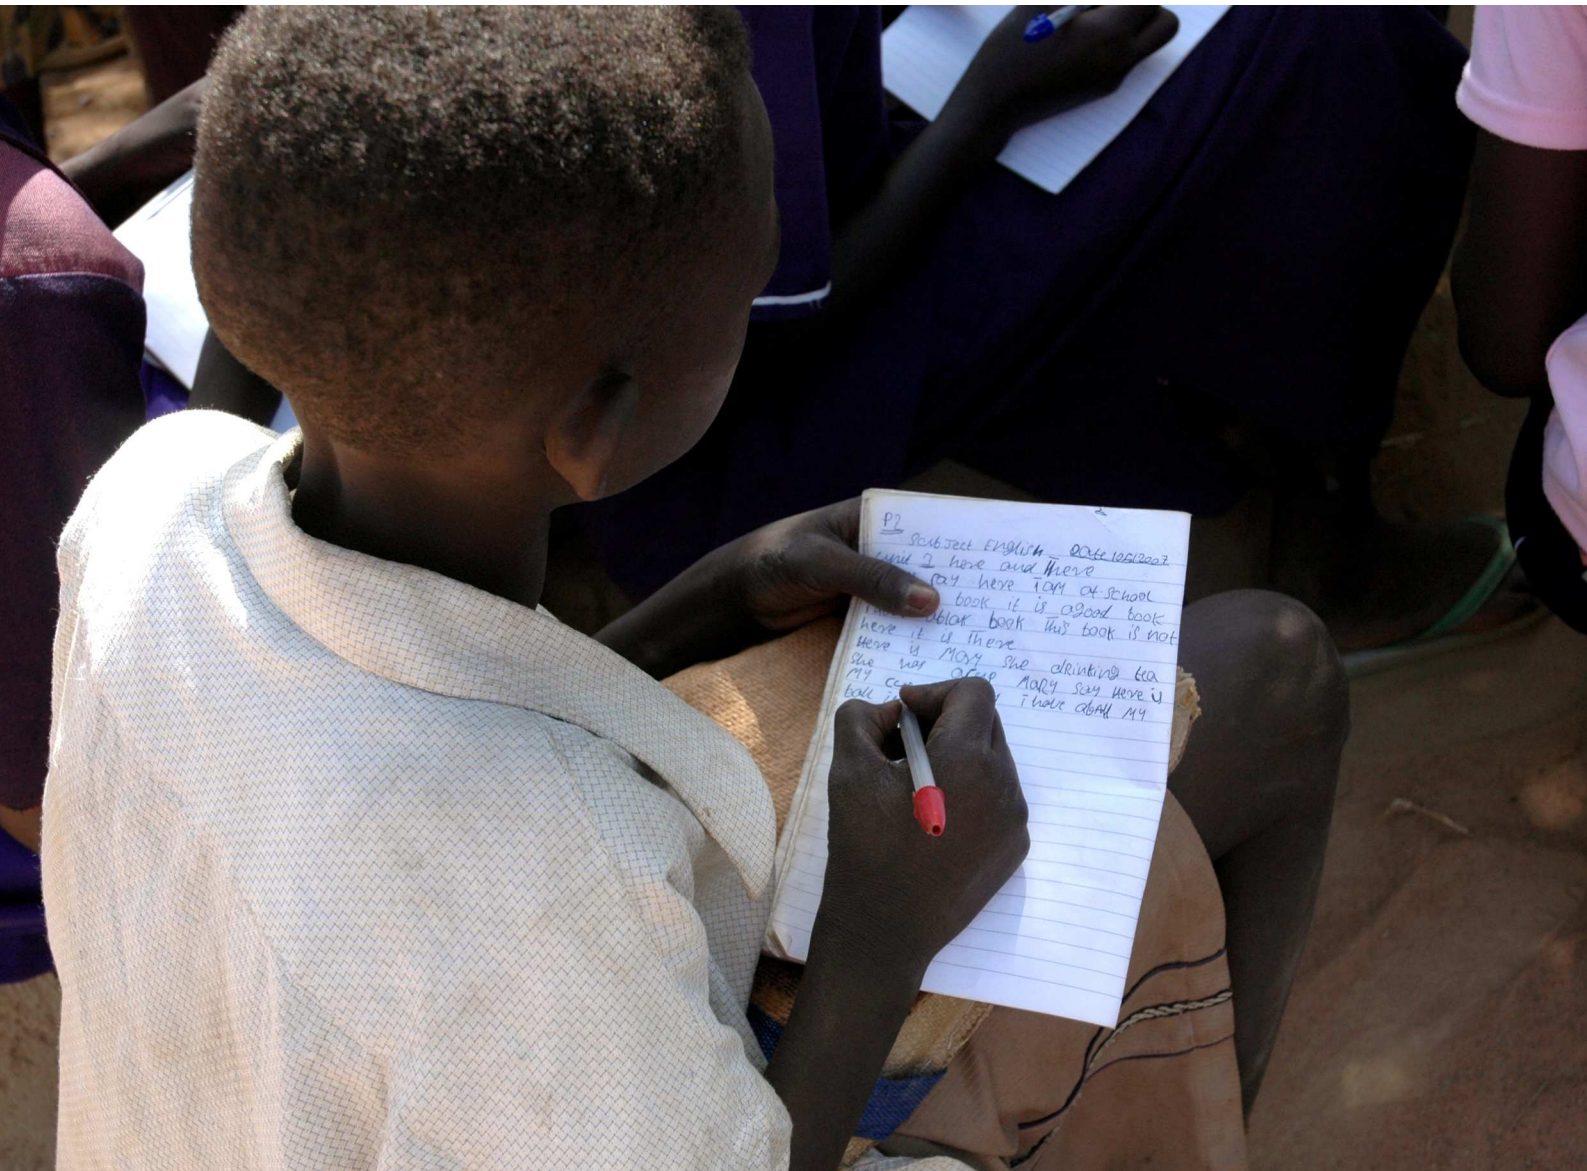 P2
Subject English Date 10512007
unit 2 here and There
say here I am at School
book it is agood book
ablak book This book is not
here it is there
Here is Mary she drinking tea
She has acup MARY say Here is
MY
ball i have aball MY